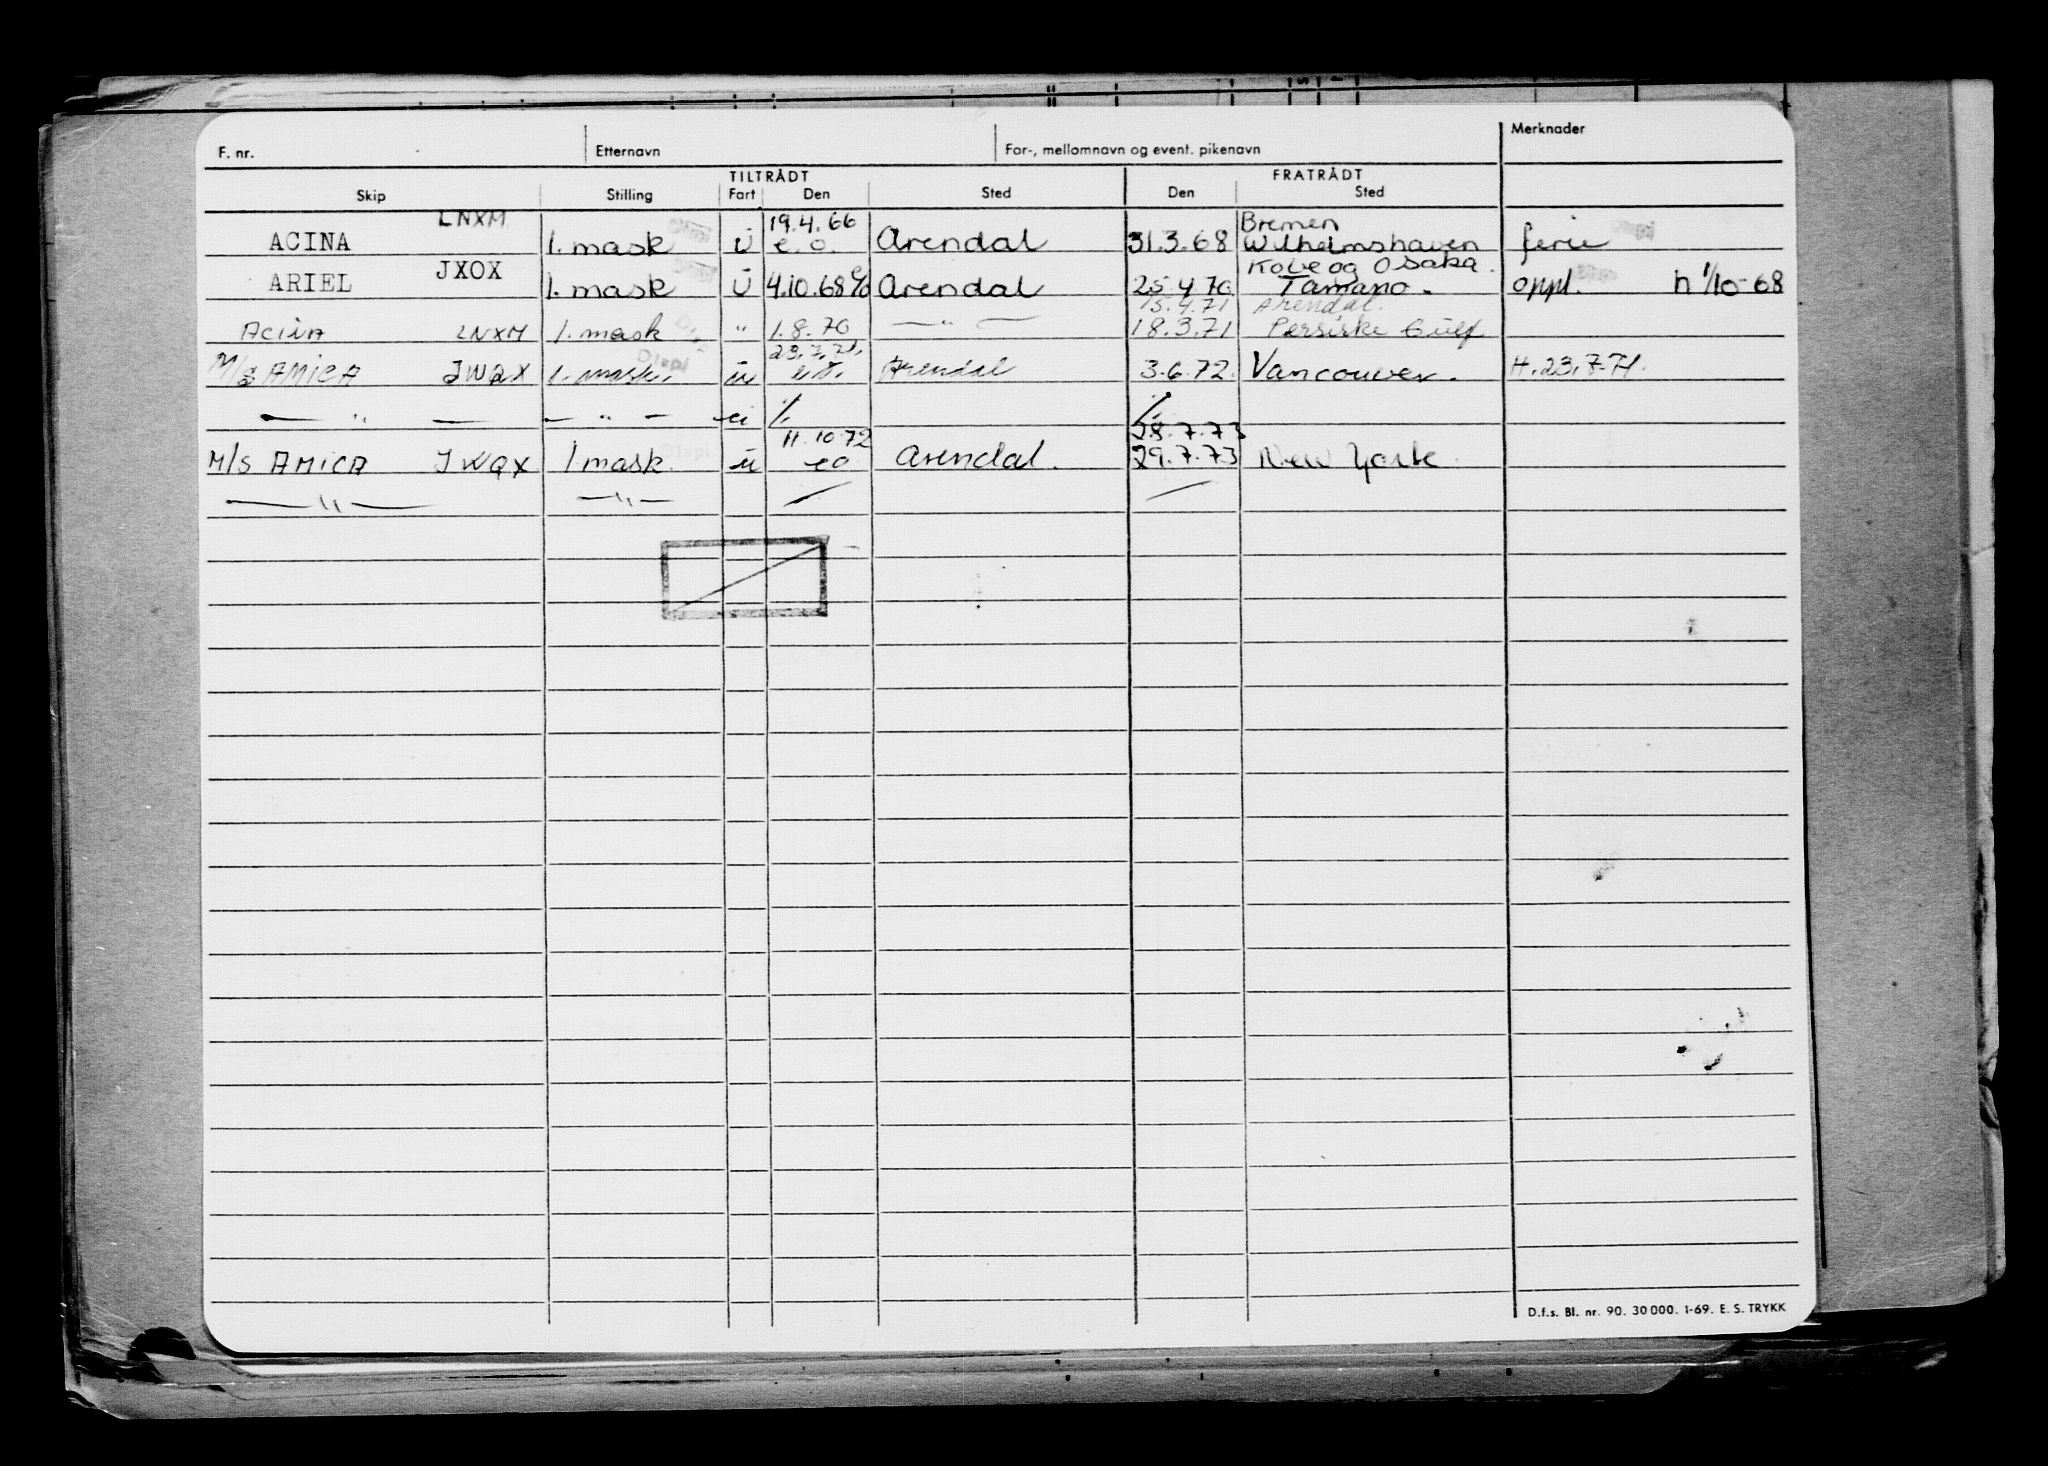 F. nr. Etternavn For-, mellomnavn og event. pikenavn Merknader
TILTRÅDT FRATRÅDT
Skip Stilling Fart Den Sted Den Sted
LNXM 19.4.66 Bremen
ACINA 1. mask ü e. o. Arendal 31.3.68 Wilhelmshaven ferie
JXOX Kobe og Osaka.
ARIEL 1. mask ü 4.10.68 e/o Arendal 25.4.70 Tamano. oppl. h 1/10-68
15.4.71 Arendal.
Acina LNXM 1. mask " 1.8.70 — " — 18.3.71 Persiske Gulf
23.7.71.
M/S AMICA JWQX 1. mask. ü e.o. Arendal 3.6.72. Vancouver. H. 23.7-71.
— " — — " — ü /. /.
11.10.72 28.7.73
M/S AMICA JWQX 1 mask. ü eo Arendal. 29.7.73 New York.
— " — — " — / /
D.f.s. Bl. nr. 90. 30 000. 1-69. E. S. TRYKK